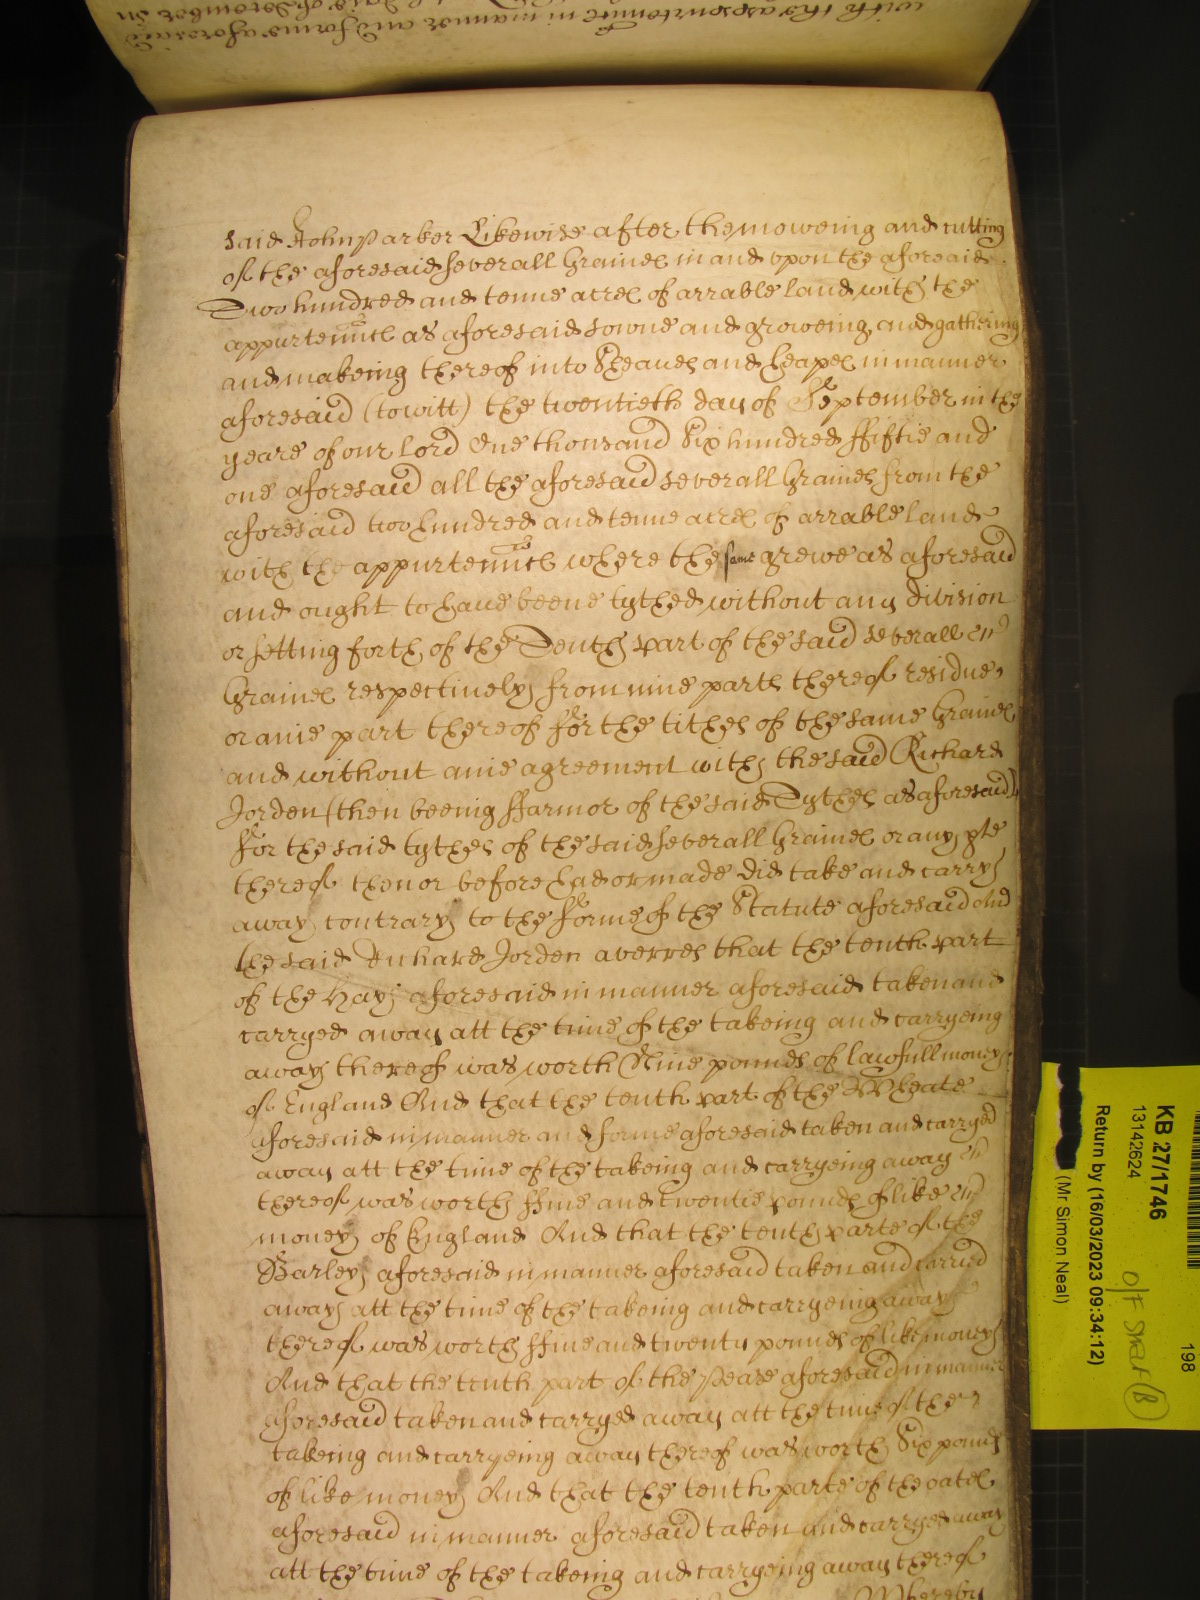 with the appurtennce in manner and forme aforesaid
said John Parker Likewise after the moweing and cutting
of the aforesaid severall Graines in and upon the aforesaid
Two hundred and tenne acres of arrable land with the
appurtennces as aforesaid sowne and groweing and gathering
and makeing thereof into Sheaves and heapes in manner
aforesaid (towitt) the twentieth day of September in the
yeare of our Lord One thousand Six hundred ffiftie and
one aforesaid all the aforesaid severall Graines from the
aforesaid two hundred and tenne acres of arrable land
with the appurtennces where the same grewe as aforesaid
and ought to have beene tythed without any division
or setting forth of the Tenth part of the said severall
Graines respectively from nine parts thereof residue
or anie part thereof for the tithes of the same Graines
and without anie agreement with the said Richard
Jorden (then beeing ffarmor of the said Tythes as aforesaid)
For the said tythes of the said severall Graines or any pte
thereof then or before had or made did take and carry
away contrary to the forme of the Statute aforesaid And
the said Richard Jorden averres that the tenth part
of the Hay aforesaid in manner aforesaid taken and
carryed away att the time of the takeing and carryeing
away thereof was worth Nine pounds of lawfull money
of England And that the tenth part of the Wheate
aforesaid in manner and forme aforesaid taken and carryed
away att the time of the takeing and carryeing away
thereof was worth ffive and twentie pounds of like
money of England And that the tenth parte of the
Barley aforesaid in manner aforesaid taken and carried
away att the time of the takeing and carryeing away
thereof was worth ffive and twenty pounds of like money
And that the tenth part of the Pease aforesaid in manner
aforesaid taken and carryed away att the time of the
takeing and carryeing away thereof was worth Six pounds
of like money And that the tenth parte of the oates
aforesaid in manner aforesaid taken and carryed away
att the time of the takeing and carryeing away thereof
Whereby
KB 27/1746
13142624
Return by (16/03/2023 09:34:12)
(Mr Simon Neal)
198